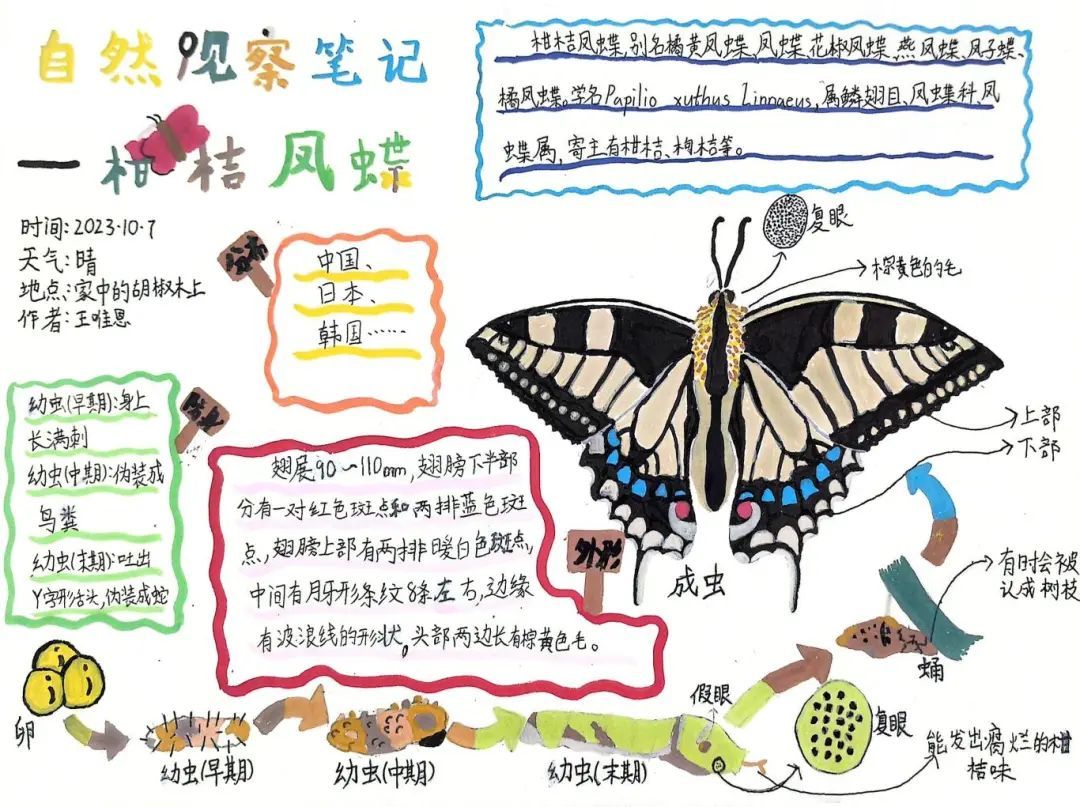 自然观察笔记
—柑桔凤蝶
柑桔凤蝶,别名橘黄凤蝶、凤蝶、花椒凤蝶、燕凤蝶、凤子蝶、
橘凤蝶。学名Papilio xuthus Linnaeus,属鳞翅目、凤蝶科、凤
蝶属,寄主有柑桔、枸桔等。
时间:2023·10·7
天气:晴
地点:家中的胡椒木上
作者:王唯恩
分布
中国、
日本、
韩国……
复眼
棕黄色的毛
上部
下部
成虫
防身
幼虫(早期):身上
长满刺
幼虫(中期):伪装成
鸟粪
幼虫(末期):吐出
Y字形舌头,伪装成蛇
外形
翅展90~110mm,翅膀下半部
分有一对红色斑点和两排蓝色斑
点,翅膀上部有两排暖白色斑点,
中间有月牙形条纹8条左右,边缘
有波浪线的形状,头部两边长有棕黄色毛。
有时会被
认成树枝
蛹
卵
幼虫(早期)
幼虫(中期)
幼虫(末期)
假眼
复眼
能发出腐烂的柑
桔味